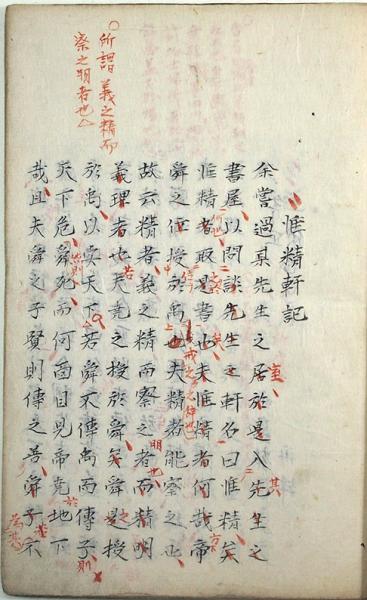 惟精軒記
余嘗過真先生之居於是入先生之
書屋以問談先生之軒名曰惟精矣
惟精者取是書也夫惟精者何哉帝
舜之位授於禹也夫精者能察之也
故云精者義之精而察之者而精明
義理者也夫堯之授於舜矣舜是授
於禹以安天下若舜不傳禹而傳子
天下危舜死而何面目見帝堯地下
哉且夫舜之子賢則傳之善舜子不
所謂義之精而
察之明者也